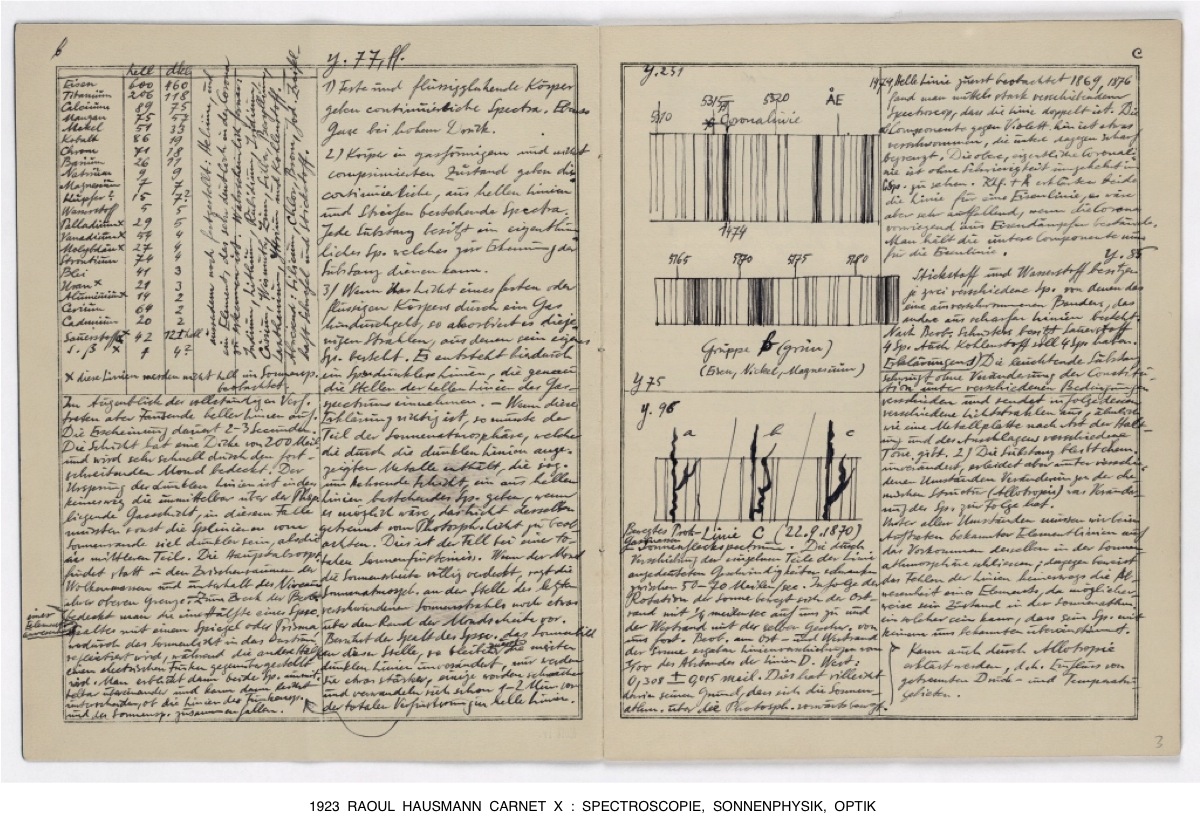 b
hell dkl.
Eisen 600 460
Titanium 206 118
Calcium 89 75
Mangan 75 57
Nickel 51 33
Kobalt 86 19
Chrom 71 18
Barium 26 11
Natrium 9 9
Magnesium 7 7
Kupfer? 15 7?
Wasserstoff 5 5
Palladium x 29 5
Vanadium x 54 4
Molybdän x 27 4
Strontium 74 4
Blei 41 3
Uran x 21 3
Aluminium x 14 2
Cerium 64 2
Cadmium 20 2
Sauerstoff x 42
x diese Linien werden nicht hell im Sonnensp.
beobachtet.
Im Augenblick des vollständigen Verf.
treten aber Tausende heller Linien auf.
Die Erscheinung dauert 2-3 Secunden.
Die Schicht hat eine Dicke von 200 Meil.
und wird sehr schnell durch den fort-
schreitenden Mond bedeckt. Der
Ursprung der dunklen Linien ist indess
keineswegs die unmittelbar über der Phsp.
liegende Gasschicht, in diesem Falle
müssten sonst die Splinien vom
Sonnenrande viel dunkler sein, als die
die mittleren Teile. Die Hauptabsorpt.
findet statt in den Zwischenräumen der
Wolkenmassen und unterhalb des Niveaus
ihrer oberen Grenze.
bedeckt man die eine Hälfte eines Spec.
spaltes mit einem Spiegel oder Prisma
wodurch das Sonnenlicht in das Instrum.
reflectiert wird, während die andere Hälfte
dem electrischen Funken gegenübergestellt
wird. Man erblickt dann beide Sp. unmit-
telbar übereinander und kann dann leicht
unterscheiden, ob die Linien des Funkensp.
und des Sonnensp. zusammenfallen.
y. 77, ff.
1) Feste und flüssigglühende Körper
geben continuierliche Spectra. Ebenso
Gase bei hohem Druck.
2) Körper in gasförmigem und nicht
comprimierten Zustand geben dis-
continuierliche, aus hellen Linien
und Streifen bestehende Spectra.
Jede Substanz besitzt ein eigenthüm-
liches Sp. welches zur Erkennung der
Substanz dienen kann.
3) Wenn das Licht eines festen oder
flüssigen Körpers durch ein Gas
hindurchgeht, so absorbiert es dieje-
nigen Strahlen, aus denen sein eigenes
Sp. besteht. Es entsteht hierdurch
ein Sp. dunkler Linien, die genau
die Stellen der hellen Linien des Gas-
spectrums einnehmen. – Wenn diese
Erklärung richtig ist, so müsste der
Teil der Sonnenatmosphäre, welcher
die durch die dunklen Linien ange-
zeigten Metalle enthält, die sog.
umkehrende Schicht, ein aus hellen
Linien bestehendes Sp. geben, wenn
es möglich wäre, das Licht desselben
getrennt vom Photosph. licht zu beob-
achten. Dies ist der Fall bei einer to-
talen Sonnenfinsternis. Wenn der Mond
die Sonnenscheibe völlig verdeckt, ragt die
Sonnenatmosph. an der Stelle des letzten
verschwindenen Sonnenstrahls noch etwas
über den Rand der Mondscheibe vor.
Berührt der Spalt des Spec. das Sonnenbild
an dieser Stelle, so bleiben die meisten
dunklen Linien unverändert, nur werden
sie etwas stärker, einige werden schwächer
und verwandeln sich schon 1-2 Min. vor
der totalen Verfinsterung in helle Linien.
c
y. 251
5310 5315 5320 ÅE
Coronalinie
1474
5165 5170 5175 5180
Gruppe b (grün)
(Eisen, Nickel, Magnesium)
y 75
y. 96
a b c
Linie C (22.9.1870)
Sonnenfleckspectrum. Die durch
Verschiebung der einzelnen Teile der Linie
angedeuteten Geschwindigkeiten schwanken
zwischen 50-70 Meilen/sec. Infolge der
Rotation der Sonne bewegt sich der Ost-
rand mit ¼ meilen sec auf uns zu und
der Westrand mit derselben Geschw. von
uns fort. Beob. am Ost- und Westrand
der Sonne ergaben Linienverschiebungen von
des Abstandes der Linien D. West:
0,308 ± 0,015 meil. Dies hat vielleicht
darin seinen Grund, dass sich die Sonnen-
athm. über die Photosph. vorwärts bewegt.
1474 Helle Linie zuerst beobachtet 1869, 1876
fand man mittels stark verschiedenen
Spectroscop, dass die Linie doppelt ist. Die
Componente gegen Violett hin ist etwas
verschwommen, die untere dagegen scharf
begrenzt. Die obere, eigentliche Coronali-
nie ist ohne Schwierigkeit umgekehrt im
Sp. zu sehen. Khf. + Å erklärten beide
die Linie für eine Eisenlinie, es wäre
aber sehr auffallend, wenn die Corona
vorwiegend aus Eisendämpfen bestände.
Man hält die untere Componente nun
für die Eisenlinie.
y. 85
Stickstoff und Wasserstoff besitzen
je zwei verschiedene Sp. von denen das
eine aus verschwommenen Banden, das
andere aus scharfen Linien besteht.
Nach Beob. Schusters besitzt Sauerstoff
4 Sp. Auch Kohlenstoff soll 4 Sp. haben.
Erklärungen 1) Die leuchtende Substanz
schwingt ohne Veränderung der Constitu-
tion unter verschiedenen Bedingungen
verschieden und sendet infolgedessen
verschiedene Lichtstrahlen aus, ähnlich
wie eine Metallplatte nach Art der Halt-
ung und des Anschlagens verschiedene
Töne gibt. 2) Die Substanz bleibt chem.
unverändert, erleidet aber unter verschie-
denen Umständen Veränderungen der che-
mischen Structur (Allotropie) was Verände-
rung des Sp. zu Folge hat.
Unter allen Umständen müssen wir beim
Auftreten bekannter Elementlinien auf
das Vorkommen derselben in der Sonnen-
athmosphäre schliessen; dagegen beweist
das Fehlen der Linien keineswegs die Ab-
wesenheit eines Elements, da möglicher-
weise sein Zustand in der Sonnenathm.
ein solcher sein kann, dass sein Sp. mit
keinem uns bekannten übereinstimmt.
Kann auch durch Allotropie
erklärt werden, d.h. Einfluss von
getrennten Druck- und Temperatur-
gebieten.
3
1923 RAOUL HAUSMANN CARNET X : SPECTROSCOPIE, SONNENPHYSIK, OPTIK